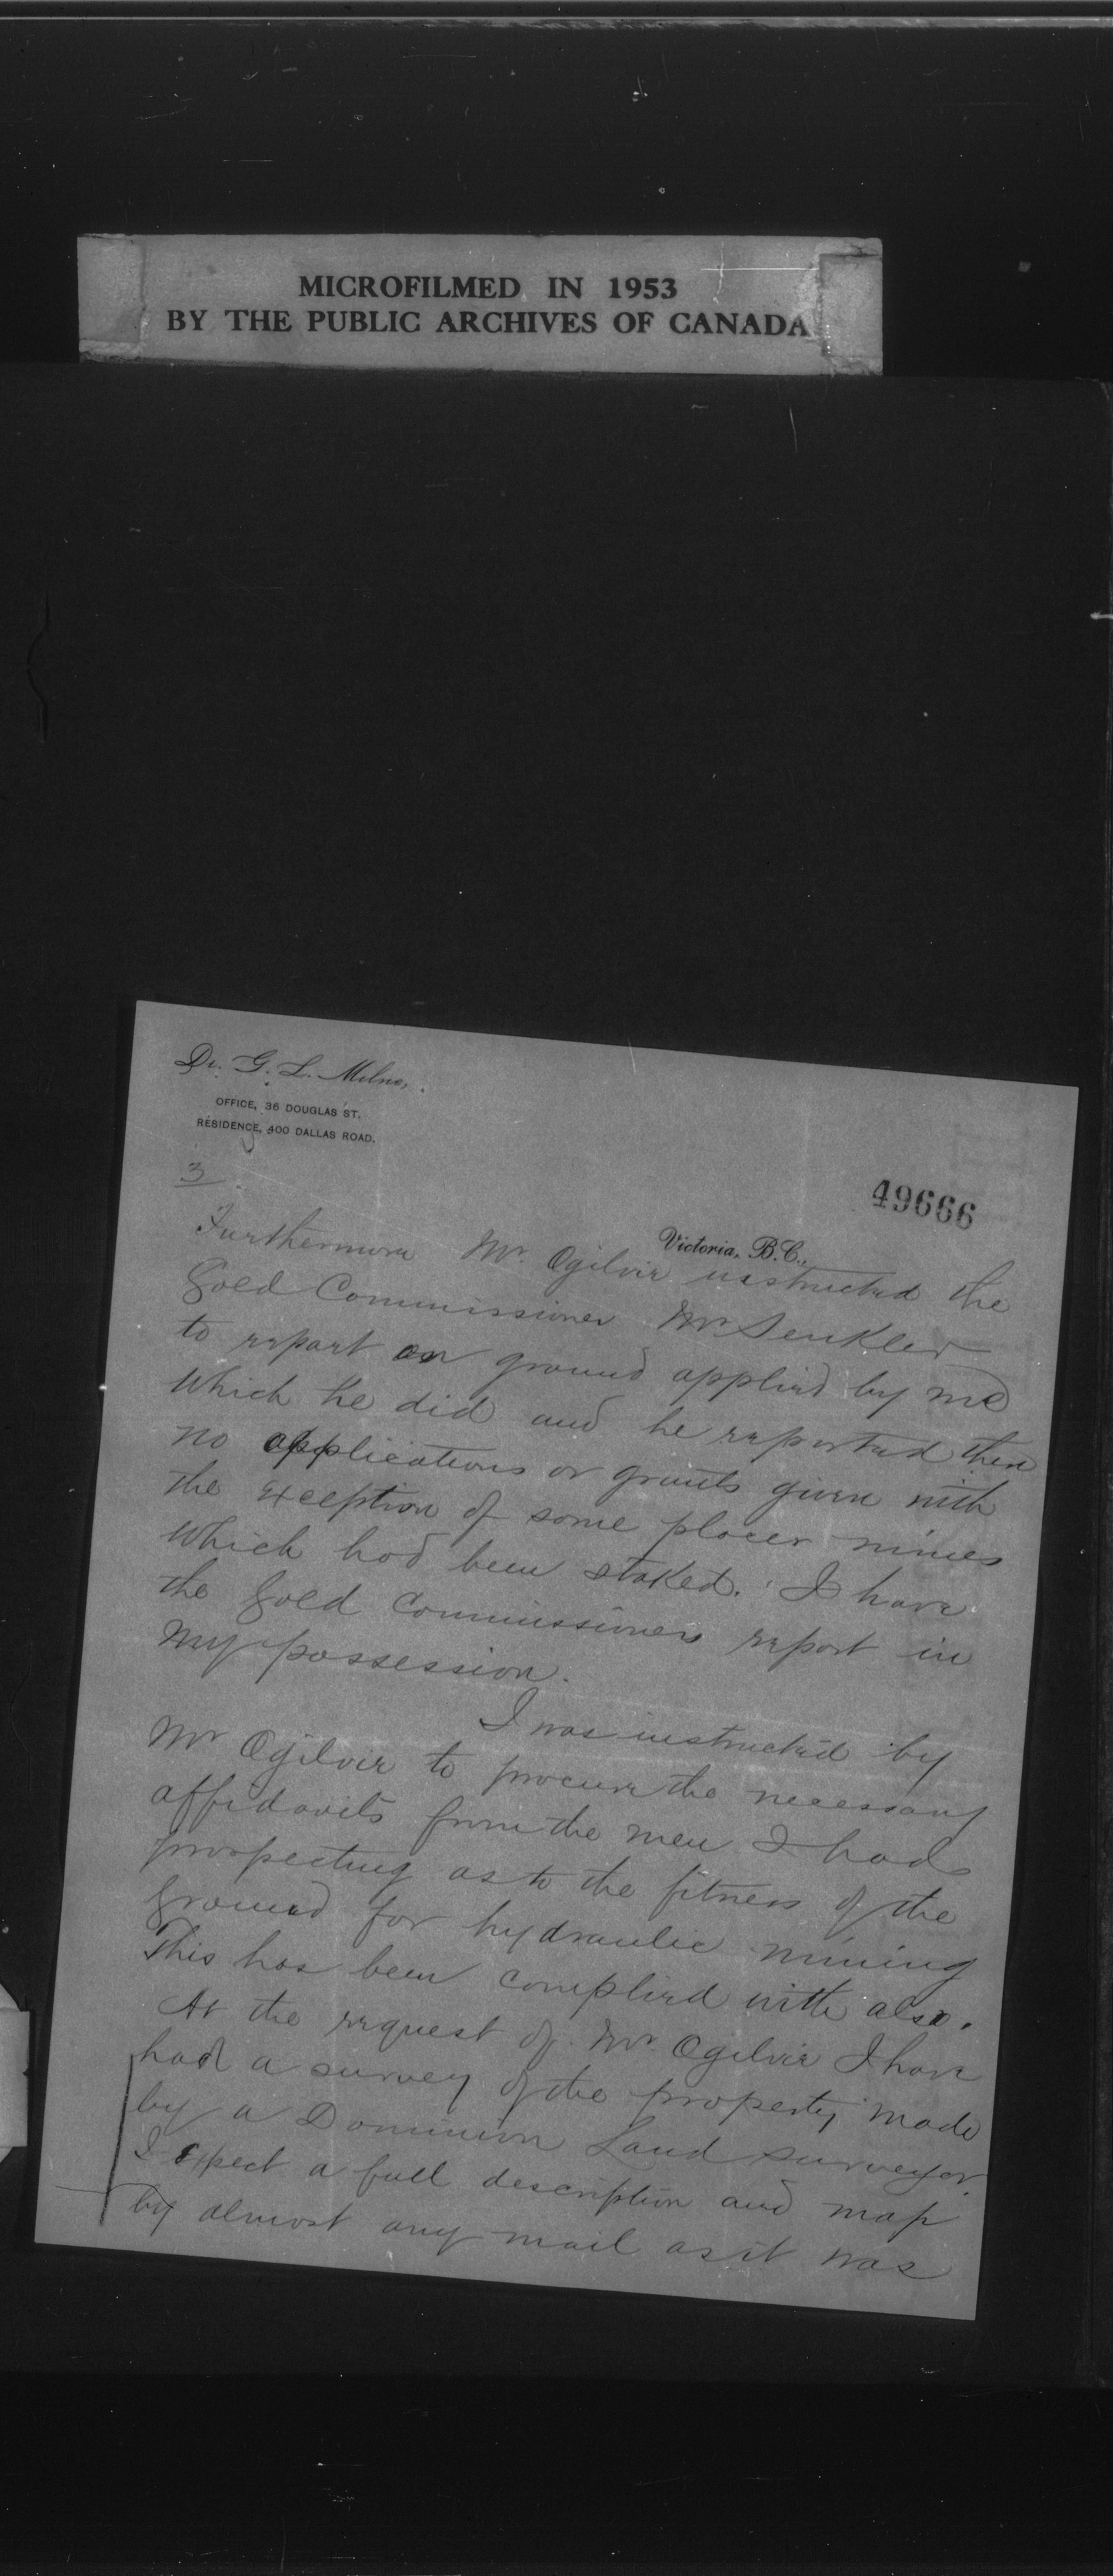 MICROFILMED IN 1953
BY THE PUBLIC ARCHIVES OF CANADA
Dr. G. L. Milne,
OFFICE, 36 DOUGLAS ST.
RESIDENCE, 400 DALLAS ROAD.
3
49666
Victoria, B.C.,
Furthermore Mr. Ogilvie instructed the
Gold Commissioner Mr Senkler
to report on ground applied by me
which he did and he reported then
no applications or grants given with
the exception of some placer mines
which had been staked. I have
the Gold Commissioners report in
my possession.
I was instructed by
Mr Ogilvie to procure the necessary
affidavits from the men I had
prospecting as to the fitness of the
ground for hydraulic mining
This has been complied with also.
At the request of Mr Ogilvie I have
had a survey of the property made
by a Dominion Land surveyor.
I expect a full description and map
by almost any mail as it was